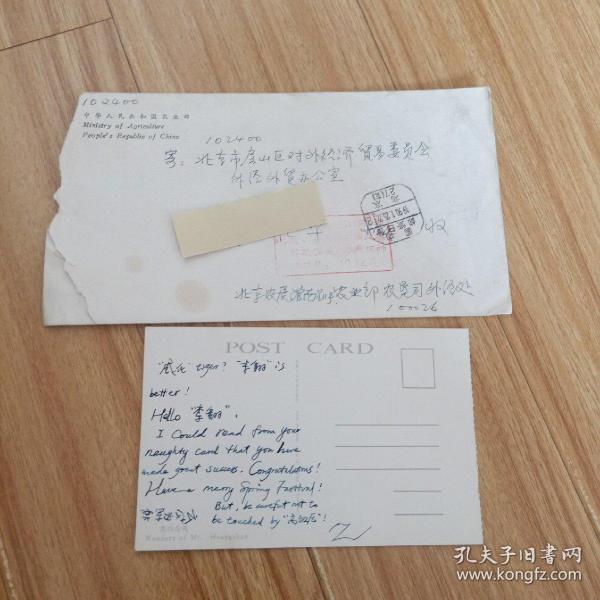 102400
中华人民共和国农业部
Ministry of Agriculture
People's Republic of China
102400
寄：北京市房山区对外经济贸易委员会
外经外贸办公室
收
北京农展馆南里 农业部农垦司外经处
100026
POST CARD
tiger? "李翻" is
better!
Hello "李翻",
I could read from your
naughty card that you have
made great success. Congratulations!
Have a merry Spring Festival!
But, be careful not to
be touched by
Wonders of Mt. Huangshan
孔夫子旧书网
www.kongfz.com